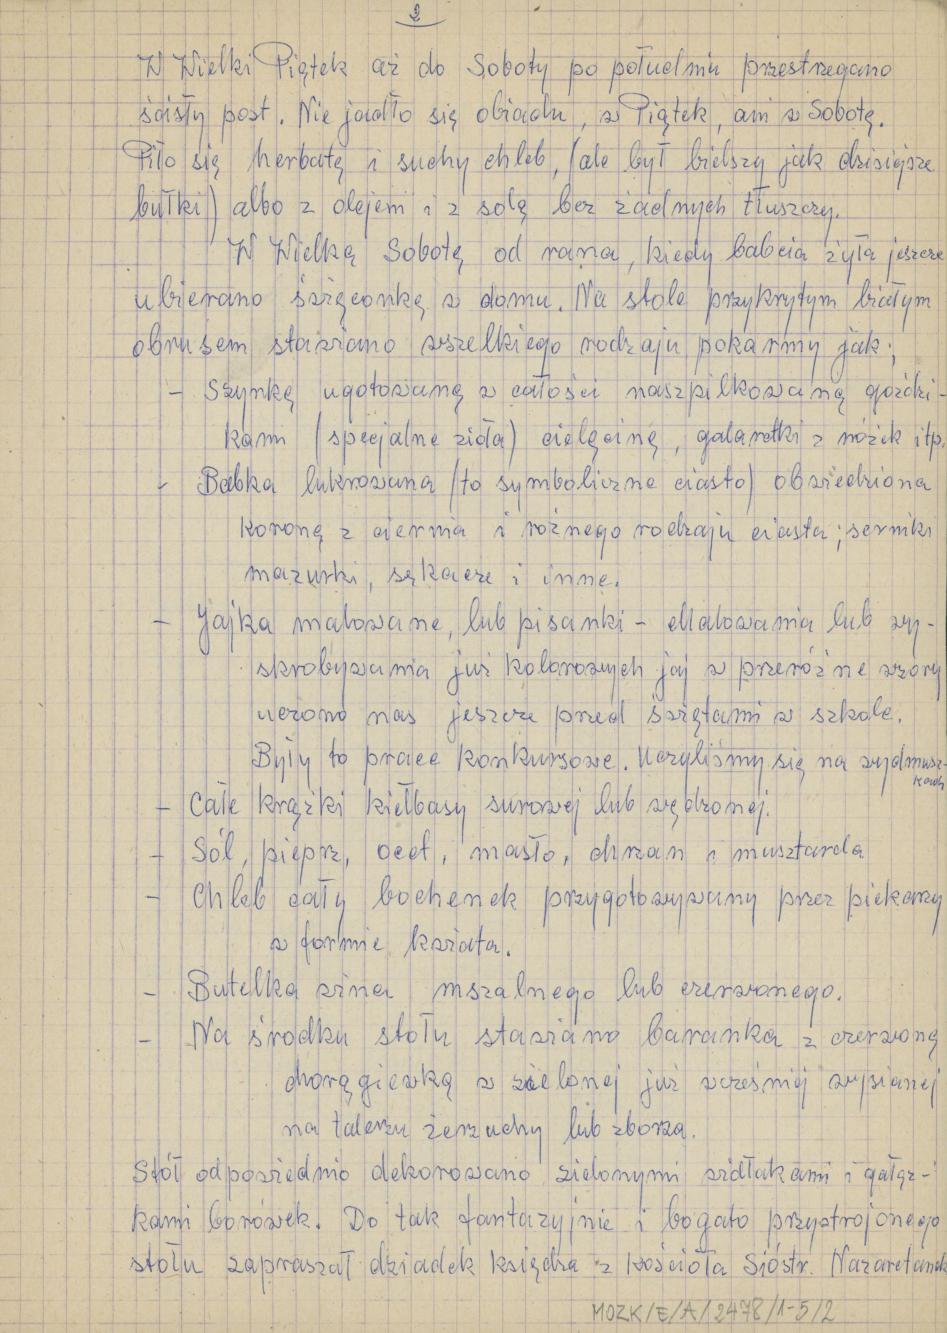 2
W Wielki Piątek aż do Soboty po południu przestrzegano
ścisły post. Nie jadło się obiadu, w Piątek, ani w Sobotę.
Piło się herbatę i suchy chleb, (ale był bielszy jak dzisiejsze
bułki) albo z olejem i z solą bez żadnych tłuszczy.
W Wielką Sobotę od rana, kiedy babcia żyła jeszcze
ubierano święconkę w domu. Na stole przykrytym białym
obrusem stawiano wszelkiego rodzaju pokarmy jak;
- Szynkę ugotowaną w całości naszpilkowaną goździ-
kami (specjalne zioła) cielęcinę, galaretki z nóżek itp.
- Babka lukrowana (to symboliczne ciasto) obwiedziona
koroną z ciernia i różnego rodzaju ciasta; serniki
mazurki, sękacze i inne.
- Jajka malowane, lub pisanki - Malowania lub wy-
skrobywania już kolorowych jaj w przeróżne wzory
uczono nas jeszcze przed świętami w szkole.
Były to prace konkursowe. Uczyliśmy się na wydmusz-
kach
- Całe krążki kiełbasy surowej lub wędzonej.
- Sól, pieprz, ocet, masło, chrzan i musztarda
- Chleb cały bochenek przygotowywany przez piekarzy
w formie kwiata.
- Butelka wina mszalnego lub czerwonego.
- Na środku stołu stawiano baranka z czerwoną
chorągiewką w zielonej już wcześniej wysianej
na talerzu żerzuchy lub zboża.
Stół odpowiednio dekorowano zielonymi widłakami i gałąz-
kami borówek. Do tak fantazyjnie i bogato przystrojonego
stołu zapraszał dziadek księdza z kościoła Sióstr. Nazaretanek
MOZK/E/A/2478/1-5/2